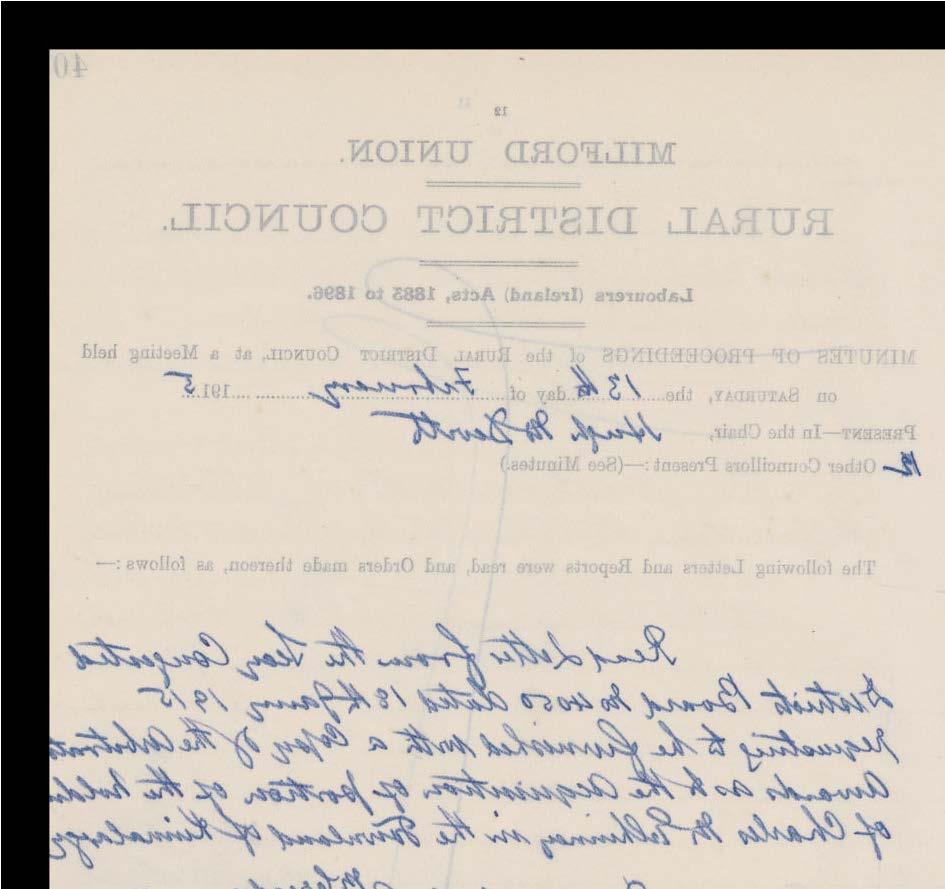 40
12
MILFORD UNION.
RURAL DISTRICT COUNCIL.
Labourers (Ireland) Acts, 1883 to 1896.
MINUTES OF PROCEEDINGS of the RURAL DISTRICT COUNCIL, at a Meeting held
on SATURDAY, the 13th day of February 1915
PRESENT—In the Chair, Hugh McDevitt
12 Other Councillors Present:—(See Minutes.)
The following Letters and Reports were read, and Orders made thereon, as follows:—
Read Letter from the Secy Congested
Districts Board dated 18th Jany 1915
requesting to be furnished with a Copy of the Arbitrators
Awards as to the Acquisition of portion of the holding
of Charles McElhinney in the Townland of